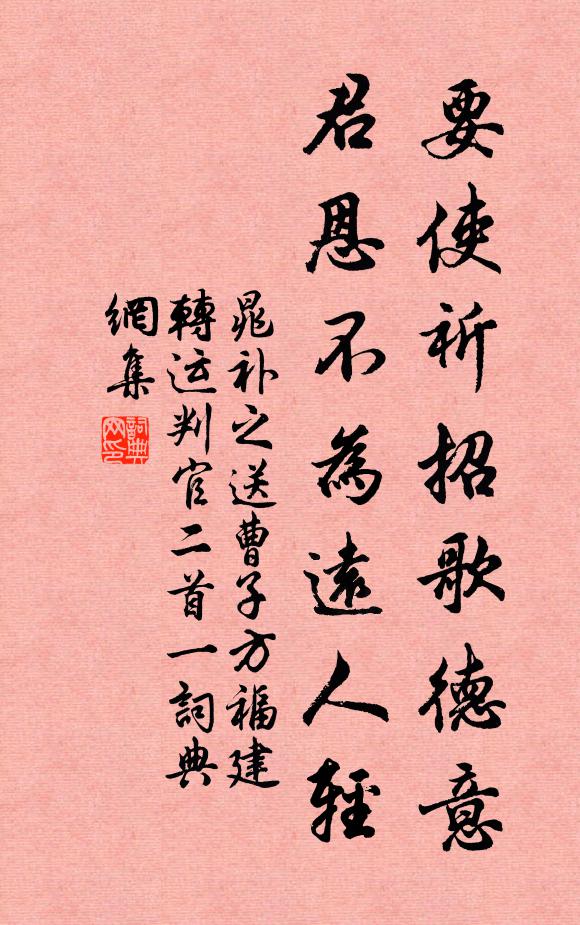 要使祈招歌德意
君恩不為遠人輕
晁补之送曹子方福建
轉运判官二首一詞典
網集
詞典
网印